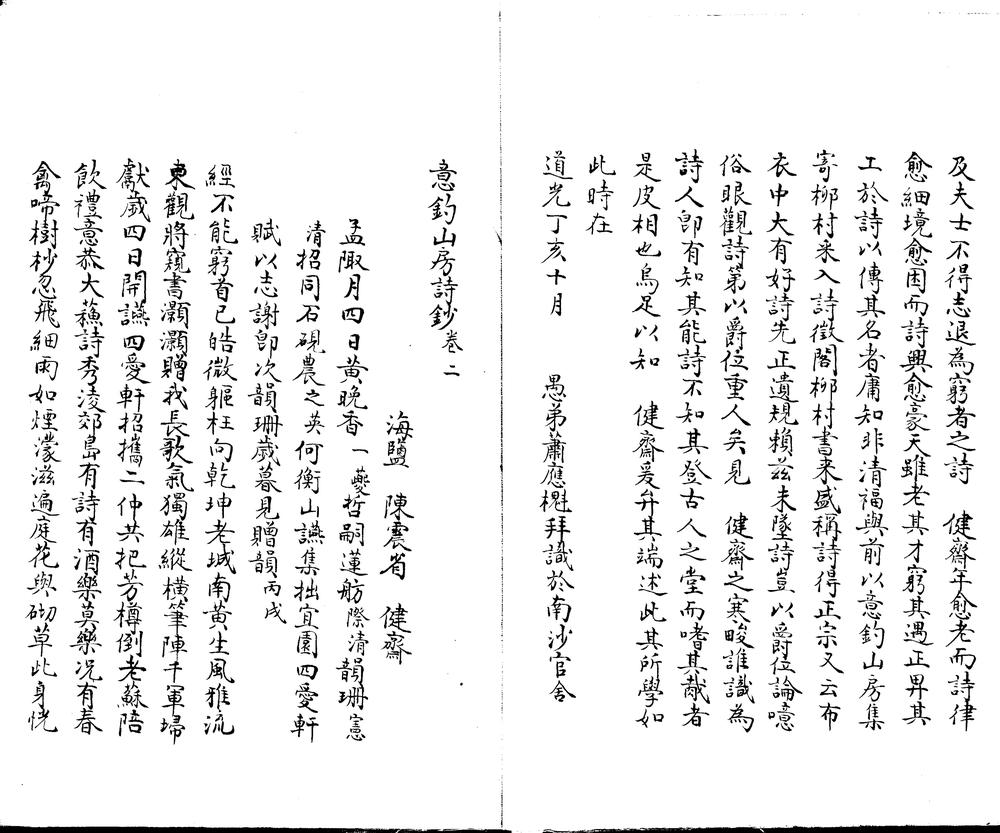 及夫士不得志退為窮者之詩　健齋年愈老而詩律
愈細境愈困而詩興愈豪天雖老其才窮其遇正畀其
工於詩以傳其名者庸知非清福與前以意釣山房集
寄柳村采入詩徵閣柳村書来盛稱詩得正宗又云布
衣中大有好詩先正遺規賴兹未墜詩豈以爵位論噫
俗眼觀詩第以爵位重人矣見　健齋之寒畯誰識為
詩人卽有知其能詩不知其登古人之堂而嗜其胾者
是皮相也烏足以知　健齋爰弁其端述此其所學如
此時在
道光丁亥十月　愚弟蕭應櫆拜識於南沙官舍
意釣山房詩鈔卷二
海鹽　陳震省　健齋
孟陬月四日黄晚香一夔哲嗣蓮舫際清韻珊憲
清招同石硯農之英何衡山讌集拙宜園四愛軒
賦以志謝卽次韻珊歲暮見贈韻丙戌
經不能窮首已皓微軀枉向乾坤老城南黄生風雅流
東觀將窺書灝灝贈我長歌氣獨雄縱横筆陣千軍埽
獻歲四日開讌四愛軒招攜二仲共把芳樽倒老蘇陪
飲禮意恭大蘓詩秀淩郊島有詩有酒樂莫樂况有春
禽啼樹杪忽飛細雨如煙濛滋遍庭花與砌草此身恍